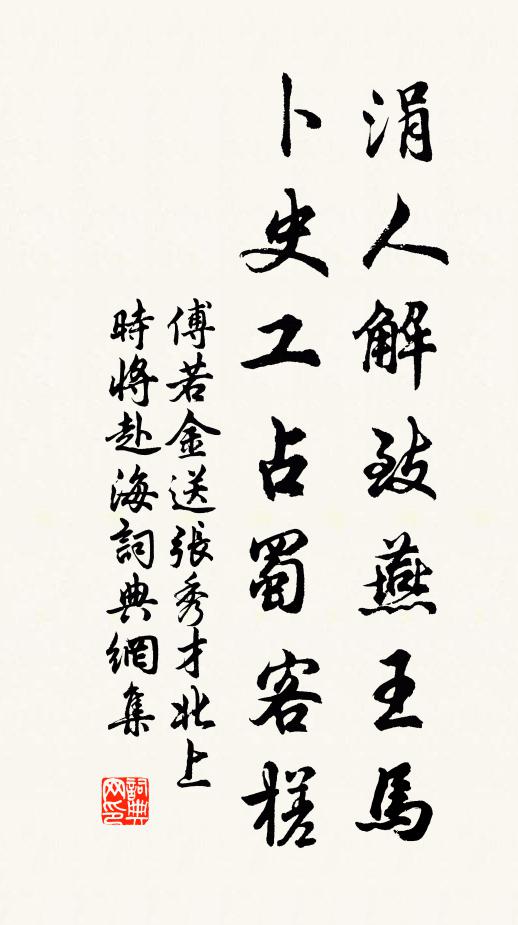 涓人解致燕王馬
卜史工占蜀客槎
傅若金送張秀才北上
時將赴海詞典網集
詞典
网印